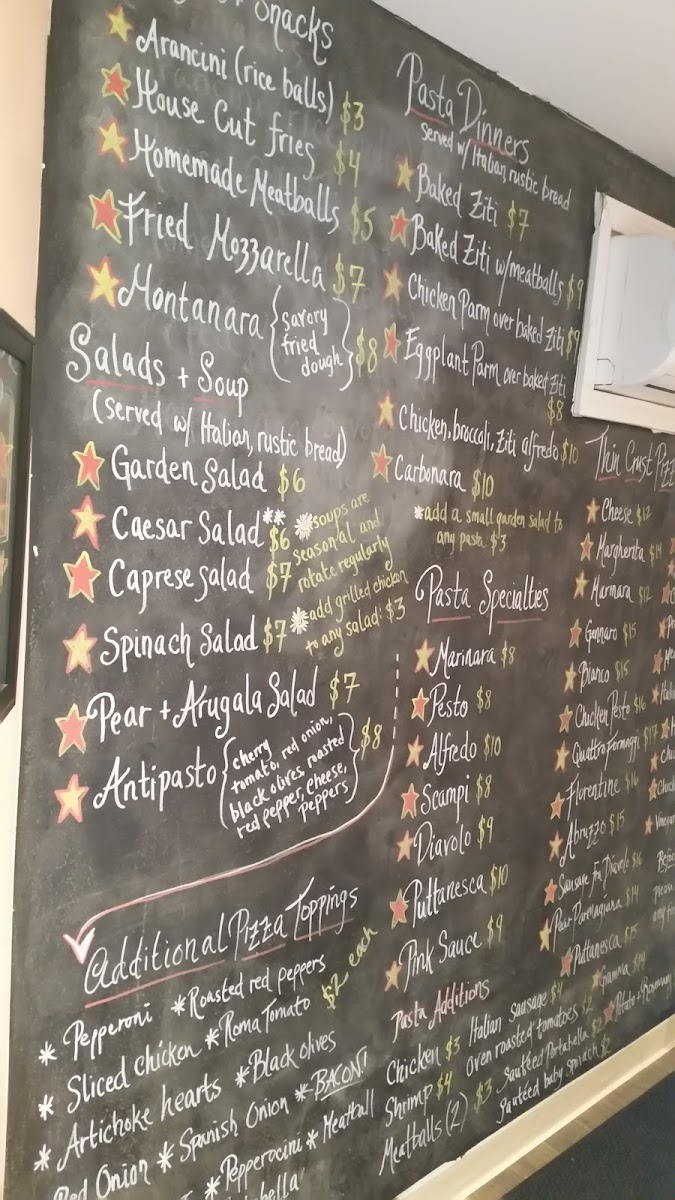 Snacks
Arancini (rice balls) $3
House Cut fries $4
Homemade Meatballs $5
Fried Mozzarella $7
Montanara { savory
fried
dough } $8
Salads + Soup
(served w/ Italian, rustic bread)
Garden Salad $6
Caesar Salad** $6
Caprese Salad $7
Spinach Salad $7
Pear + Arugala Salad $7
Antipasto { cherry
tomato, red onion,
black olives, roasted
red pepper, cheese,
peppers } $8
*soups are
seasonal and
rotate regularly
*add grilled chicken
to any salad: $3
Additional Pizza Toppings
$2 each
* Pepperoni * Roasted red peppers
* Sliced chicken * Roma Tomato
* Artichoke hearts * Black olives
Red Onion * Spanish Onion * BACON!
* Pepperocini * Meatball
Pasta Dinners
served w/ Italian rustic bread
Baked Ziti $7
Baked Ziti w/meatballs $9
Chicken Parm over baked Ziti $9
Eggplant Parm over baked Ziti
$8
Chicken, broccoli, Ziti alfredo $10
Carbonara $10
*add a small garden salad to
any pasta: $3
Pasta Specialties
Marinara $8
Pesto $8
Alfredo $10
Scampi $8
Diavolo $9
Puttanesca $10
Pink Sauce $9
Pasta Additions
Chicken $3 Italian sausage $4
Shrimp $4 oven roasted tomatoes $2
Meatballs (2) $3 Sautéed Portabella $2
Sautéed baby spinach $2
Thin Crust
Cheese $12
Margherita $14
Marinara $12
Gennaro $15
Bianco $15
Chicken Pesto $16
Quattro Formaggi $17
Florentine $16
Abruzzo $15
Sausage Fra Diavolo $16
Pear Parmagiana $14
Puttanesca $15
Gamma $14
Potato + Rosemary